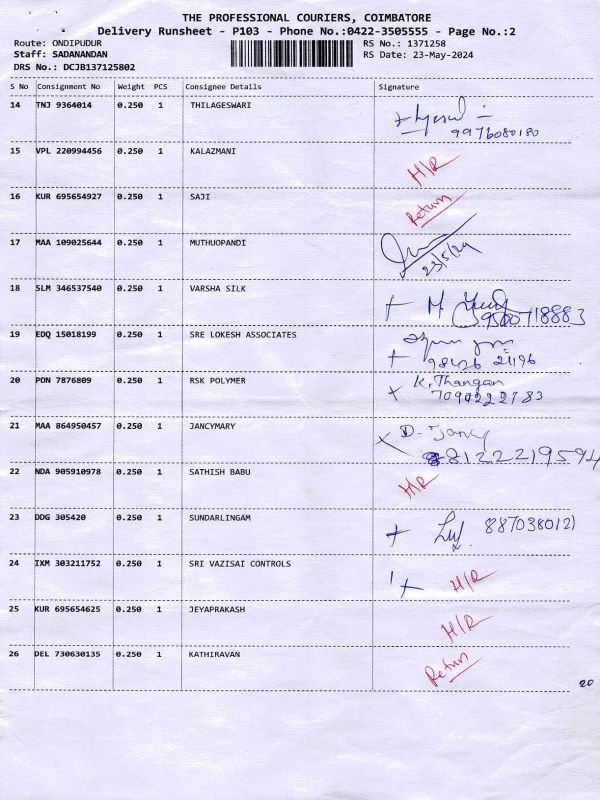 THE PROFESSIONAL COURIERS, COIMBATORE
Delivery Runsheet - P103 - Phone No.:0422-3505555 - Page No.:2
Route: ONDIPUDUR RS No.: 1371258
Staff: SADANANDAN RS Date: 23-May-2024
DRS No.: DCJB137125802
S No Consignment No Weight PCS Consignee Details Signature
14 TNJ 9364014 0.250 1 THILAGESWARI
9976080180
15 VPL 220994456 0.250 1 KALAZMANI H/R
16 KUR 695654927 0.250 1 SAJI Return
17 MAA 109025644 0.250 1 MUTHUOPANDI
23/5/24
18 SLM 346537540 0.250 1 VARSHA SILK
19 EDQ 15018199 0.250 1 SRE LOKESH ASSOCIATES
20 PON 7876809 0.250 1 RSK POLYMER K. Thangan
21 MAA 864950457 0.250 1 JANCYMARY D. Jancy
8122219594
22 NDA 905910978 0.250 1 SATHISH BABU H/R
23 DDG 305420 0.250 1 SUNDARLINGAM 8870380121
24 IXM 303211752 0.250 1 SRI VAZISAI CONTROLS H/R
25 KUR 695654625 0.250 1 JEYAPRAKASH H/R
26 DEL 730630135 0.250 1 KATHIRAVAN Return
20